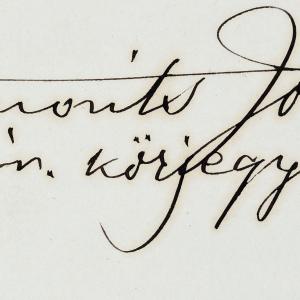 monits Jo
in. körjegy